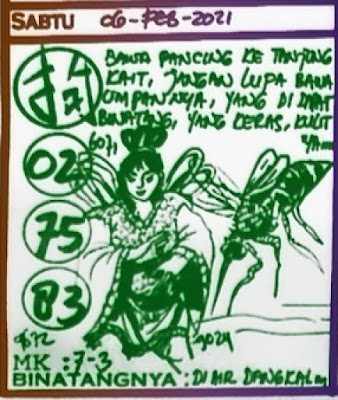 SABTU 06-FEB-2021
BAWA PANCING KE TANJONG
KAIT, JANGAN LUPA BAWA
UMPANNYA, YANG DI DAPAT
BINATANG, YANG KERAS, KULIT
6071
02
75
83
MK : 7-3
BINATANGNYA : DI AIR DANGKAL